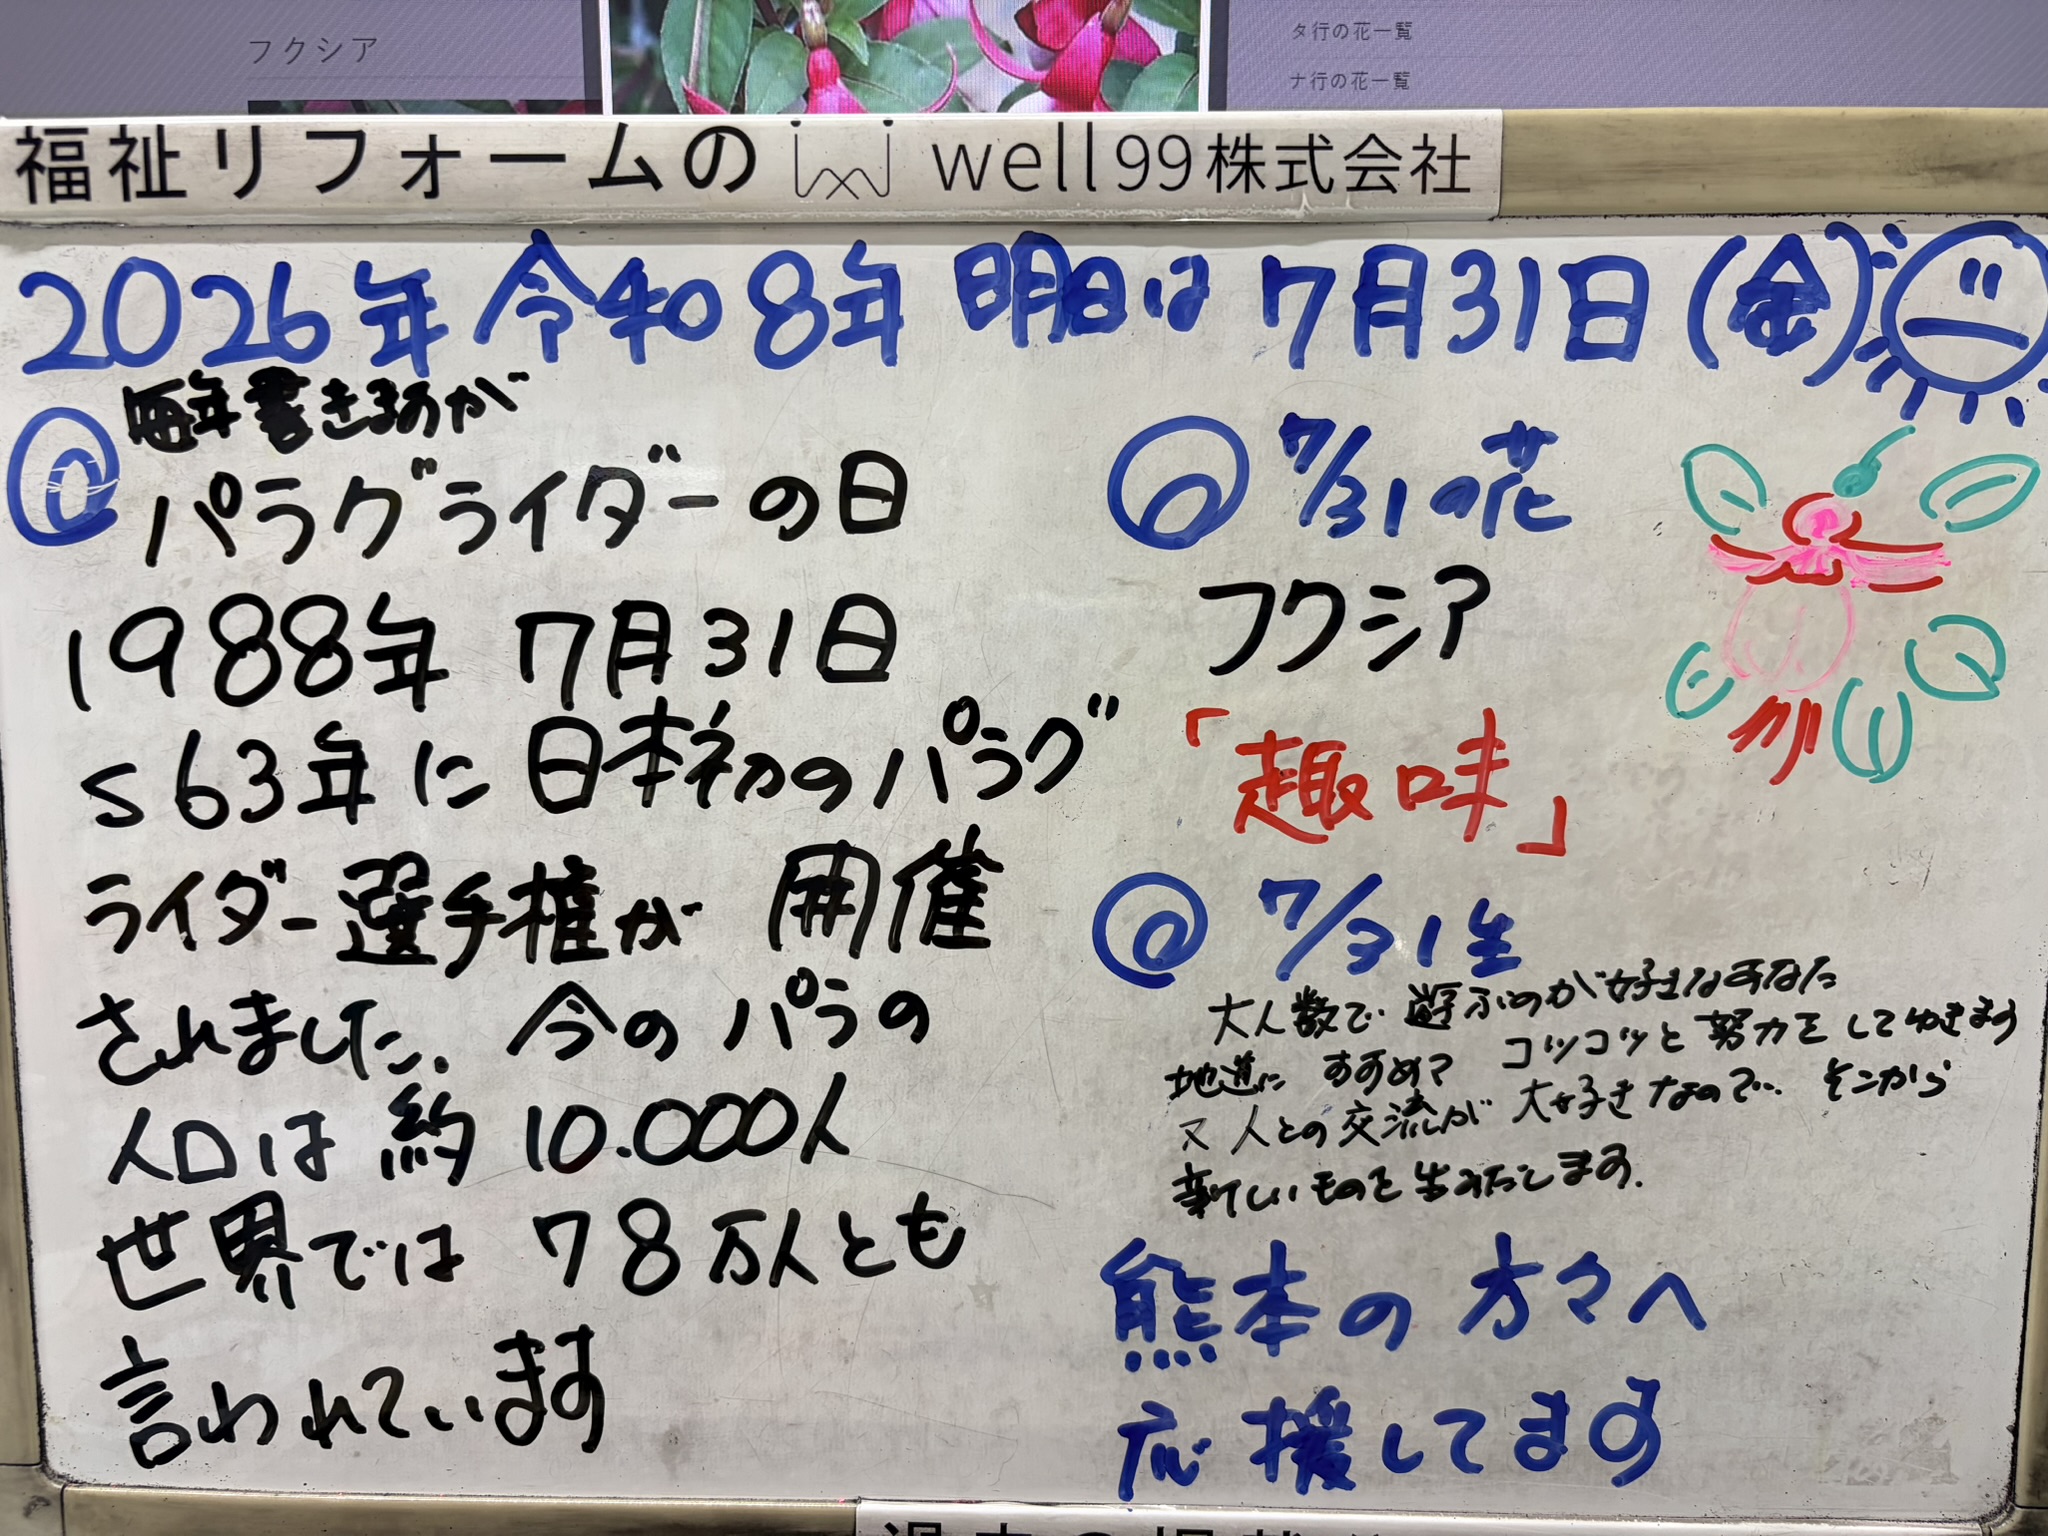 フクシア
タ行の花一覧
ナ行の花一覧
福祉リフォームの well99株式会社
2026年 令和8年 明日は 7月31日(金)
毎年書きますのが
パラグライダーの日
1988年 7月31日
S63年に日本初のパラグ
ライダー選手権が 開催
されました。今のパラの
人口は約10.000人
世界では 78万人とも
言われています
7/31の花
フクシア
「趣味」
7/31生
大人数で遊ぶのが好きなあなた
地道に すすめて コツコツと努力をしてゆきます
又 人との交流が大好きなので、そこから
新しいものを生みだします。
熊本の方々へ
応援してます